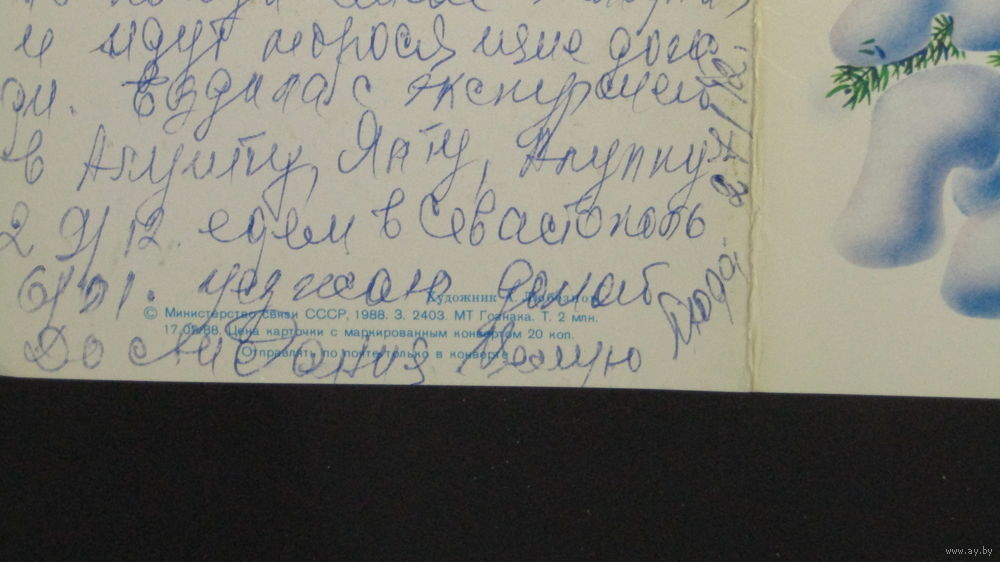 и идут моросящие дож
ди. Ездила с экскурсией
в Алушту, Ялту, Алупку
29/12. едем в Севастополь
6/01. уезжаю домой
До свидания Целую
Люда.
27/12-
Художник А. Любезнов
© Министерство связи СССР, 1988. З. 2403. МТ Гознака. Т. 2 млн.
17.05/88. Цена карточки с маркированным конвертом 20 коп.
Отправлять по почте только в конверте
www.ay.by